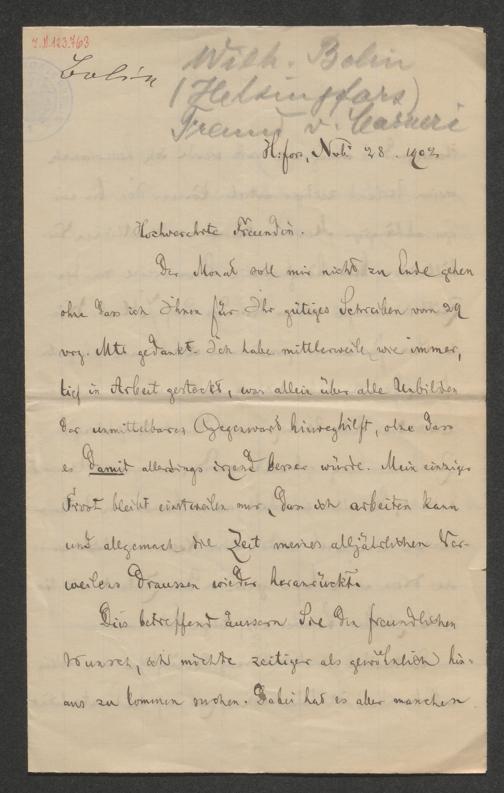 J.N. 123.763
Bolin
Wilh. Bolin
(Helsingfors)
Freund v. Carneri
H:fors, Nvb. 28. 1902
Hochverehrte Freundin.
Der Monat soll mir nicht zu Ende gehen
ohne dass ich Ihnen für Ihr gütiges Schreiben vom 29
vrg. Mts gedankt. Ich habe mittlerweile, wie immer,
tief in Arbeit gesteckt, was allein über alle Unbilden
der unmittelbaren Gegenwart hinweghilft, ohne dass
es damit allerdings irgend besser würde. Mein einziger
Trost bleibt einstweilen nur, dass ich arbeiten kann
und allgemach die Zeit meines alljährlichen Ver-
weilens draussen wieder heranrückt.
Dies betreffend äussern Sie den freundlichen
Wunsch, ich möchte zeitiger als gewöhnlich hin-
aus zu kommen suchen. Dabei hat es aber manchen